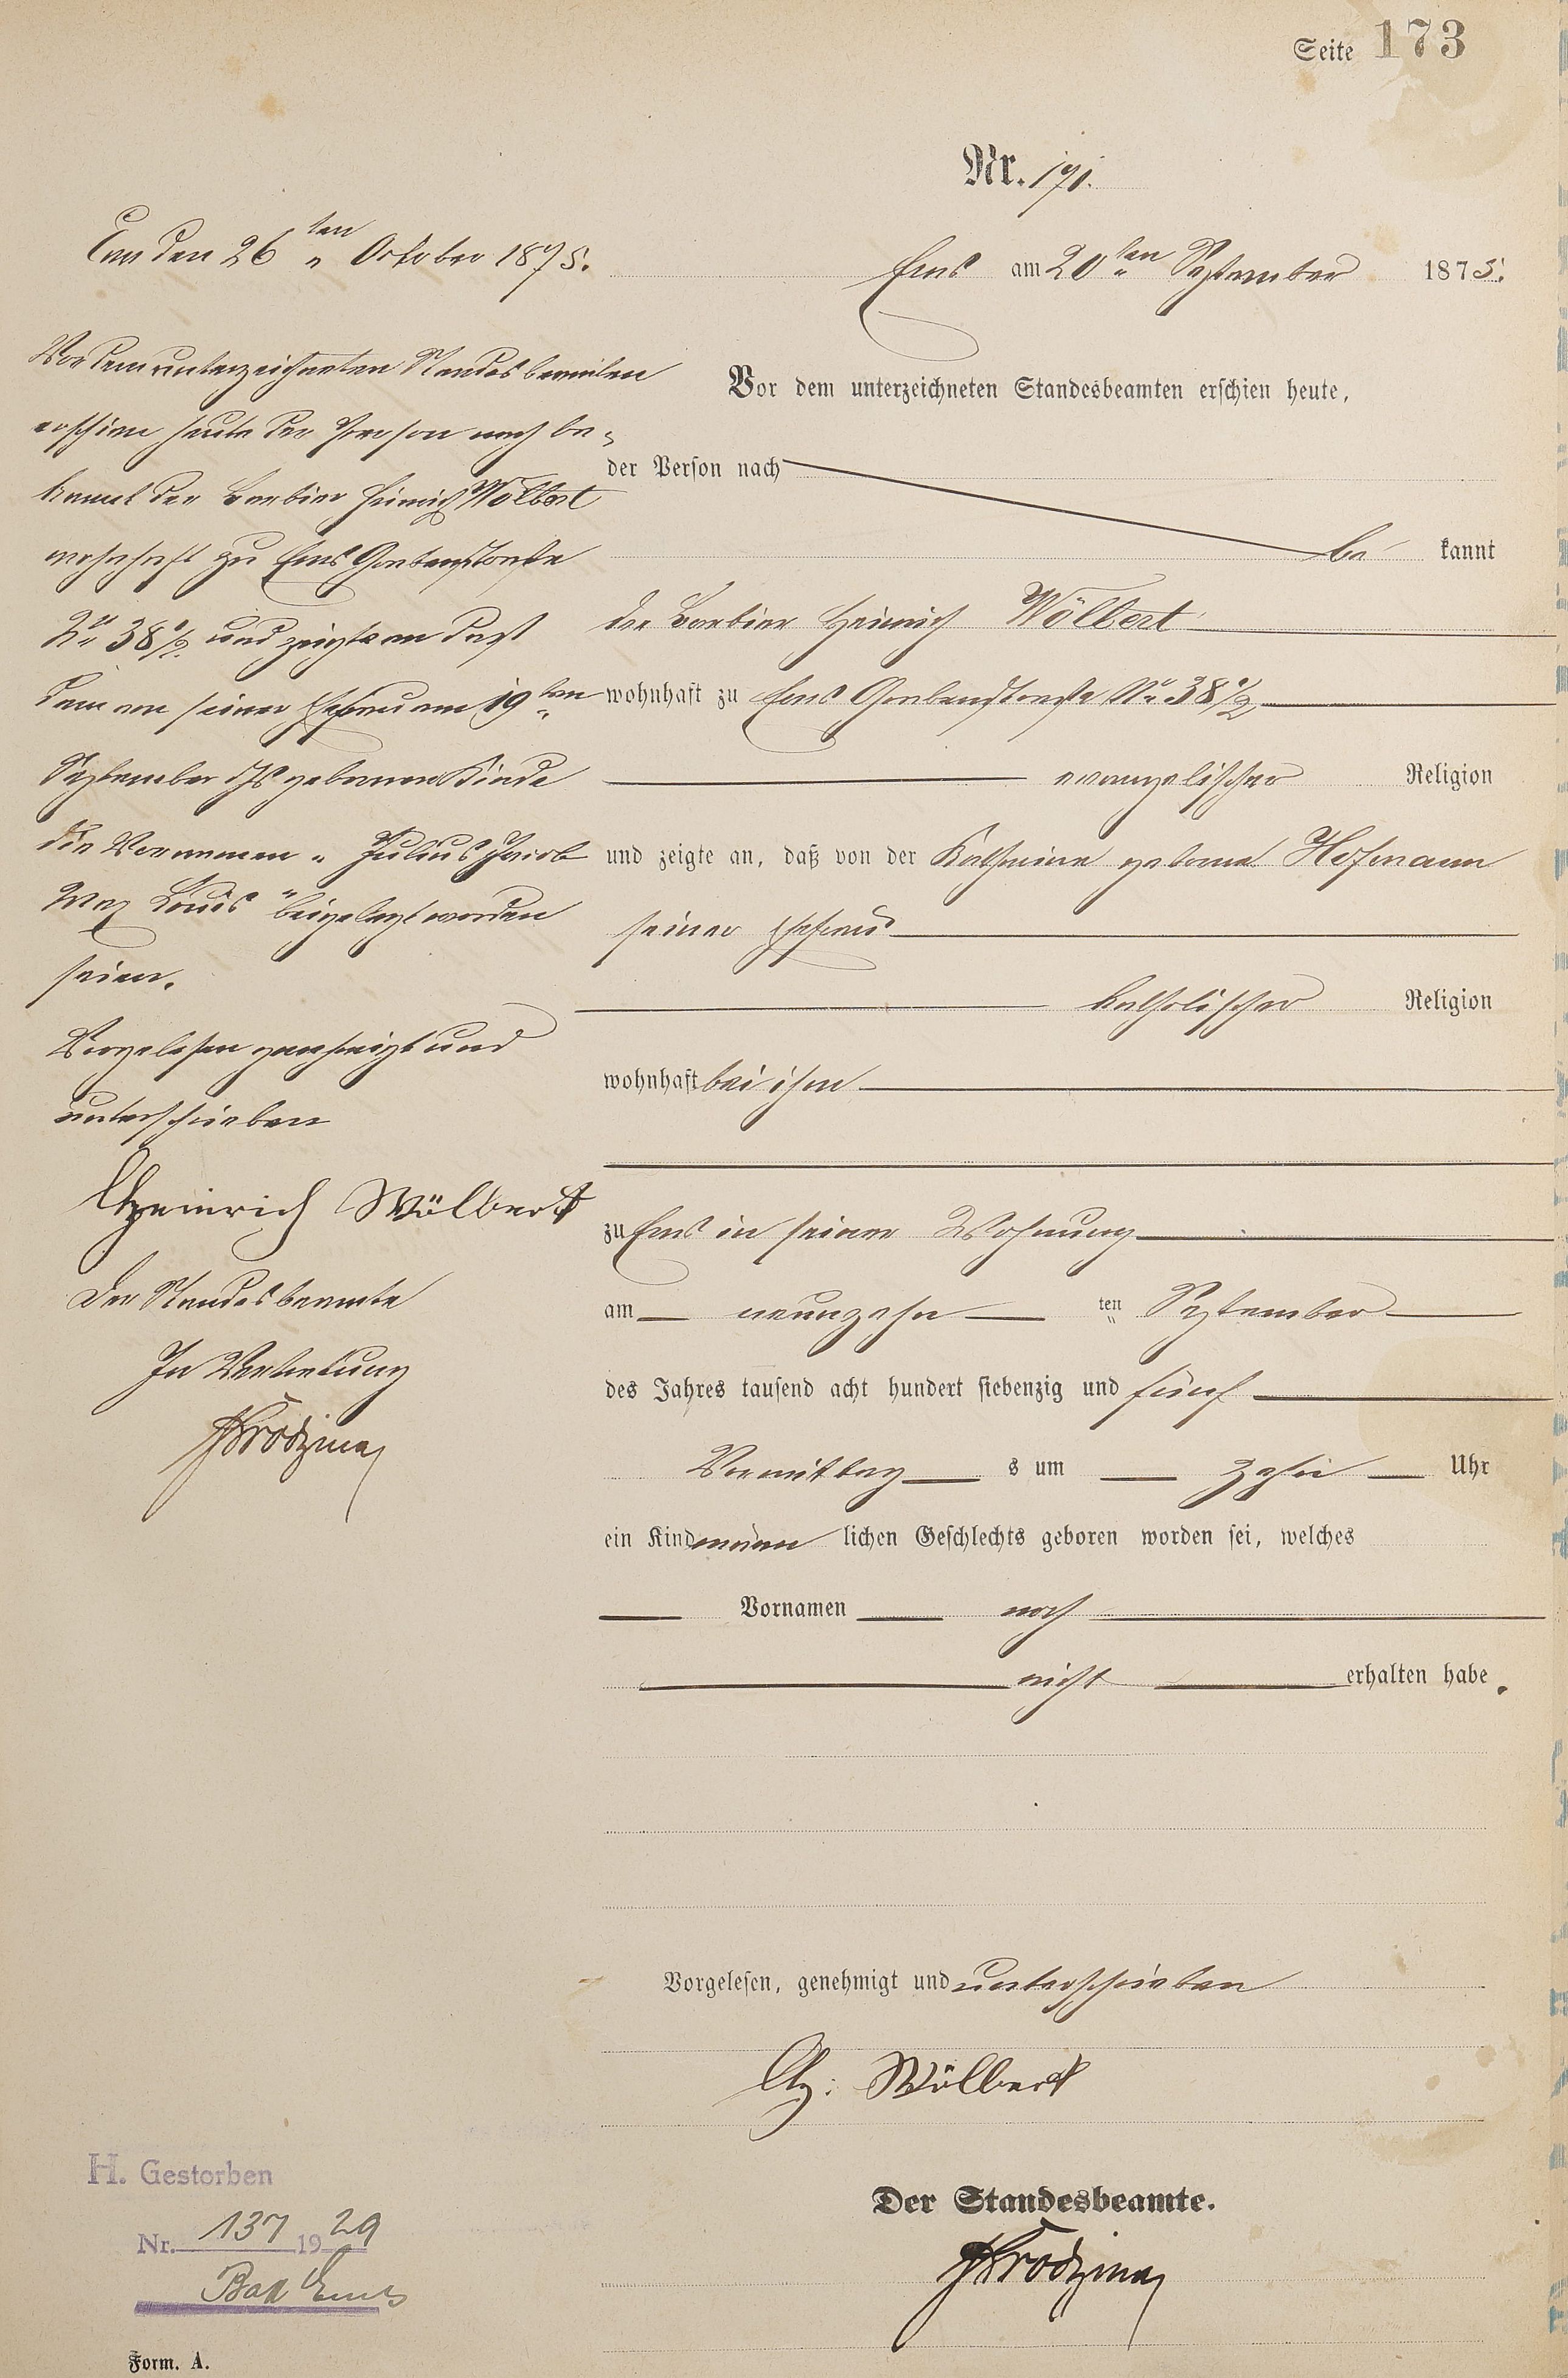 Seite 173
Nr. 171.
Ems den 26ten October 1875.
Vor dem unterzeichneten Standesbeamten
erschien heute der Person nach be-
kannt der Barbier Heinrich Wölbert
wohnhaft zu Ems Grabenstraße
No 38 1/2 und zeigte an daß
dem von seiner Ehefrau am 19ten
September d Js gebornen Kinde
die Vornamen „Julius Jacob
Max Louis" beigelegt worden
seien.
Vorgelesen genehmigt und
unterschrieben
Heinrich Wölbert
Der Standesbeamte
In Vertretung
Ems am 20ten September 1875.
Vor dem unterzeichneten Standesbeamten erschien heute,
der Person nach
be kannt
der Barbier Heinrich Wölbert
wohnhaft zu Ems Grabenstraße No 38 1/2
evangelischer Religion
und zeigte an, daß von der Katharina geborne Hofmann
seiner Ehefrau
katholischer Religion
wohnhaft bei ihm
zu Ems in seiner Wohnung
am neunzehn ten September
des Jahres tausend acht hundert siebenzig und fünf
Vormittag s um zehn Uhr
ein Kind männ lichen Geschlechts geboren worden sei, welches
Vornamen noch
nicht erhalten habe.
Vorgelesen, genehmigt und unterschrieben
H: Wölbert
Der Standesbeamte.
H. Gestorben
Nr. 137 1929
Bad Ems
Form. A.